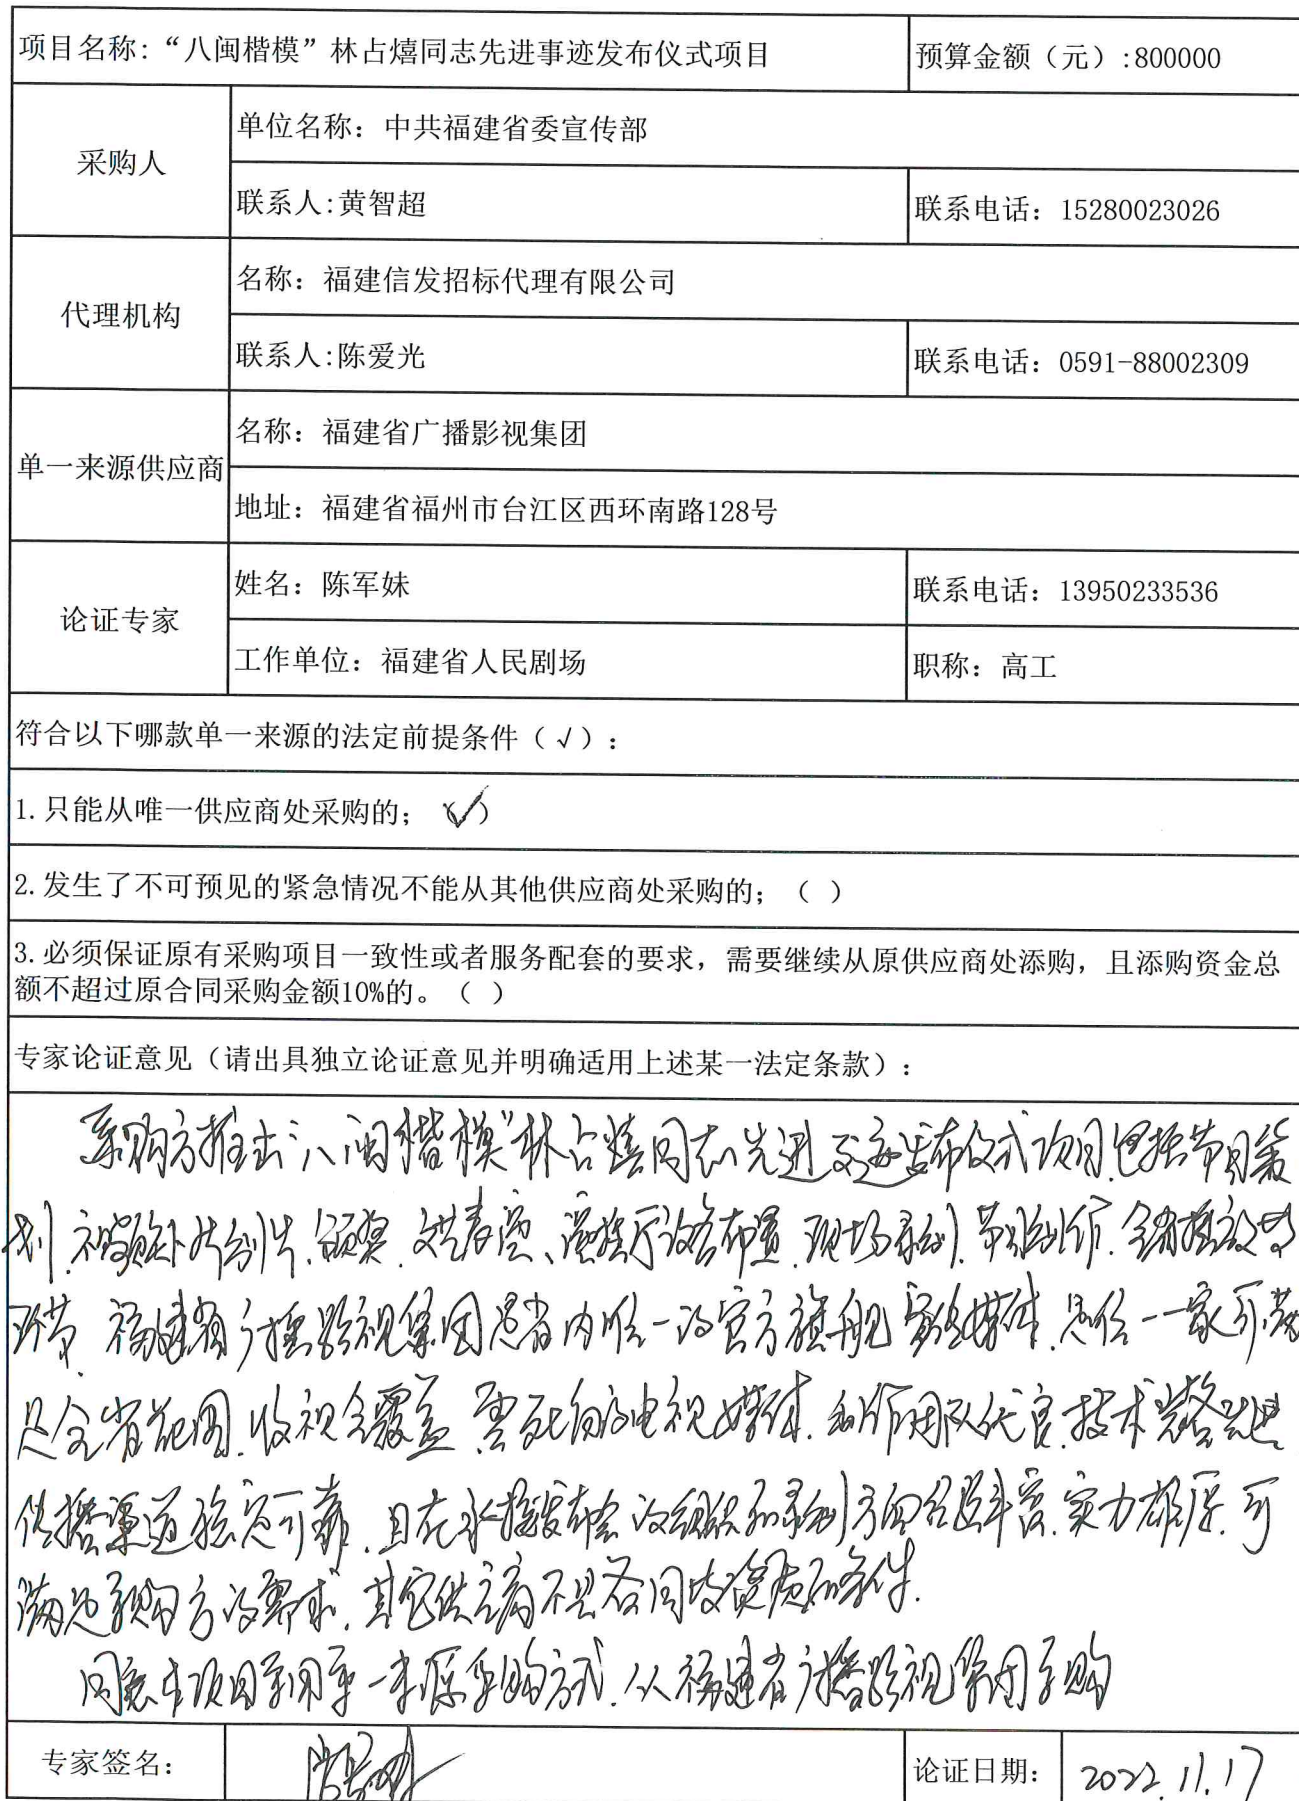 项目名称:“八闽楷模”林占熺同志先进事迹发布仪式项目
预算金额（元）:800000
采购人
单位名称：中共福建省委宣传部
联系人:黄智超
联系电话：15280023026
代理机构
名称：福建信发招标代理有限公司
联系人:陈爱光
联系电话：0591-88002309
单一来源供应商
名称：福建省广播影视集团
地址：福建省福州市台江区西环南路128号
论证专家
姓名：陈军妹
联系电话：13950233536
工作单位：福建省人民剧场
职称：高工
符合以下哪款单一来源的法定前提条件（√）：
1.只能从唯一供应商处采购的；（✓）
2.发生了不可预见的紧急情况不能从其他供应商处采购的；（ ）
3.必须保证原有采购项目一致性或者服务配套的要求，需要继续从原供应商处添购，且添购资金总
额不超过原合同采购金额10%的。（ ）
专家论证意见（请出具独立论证意见并明确适用上述某一法定条款）：
采购方推出“八闽楷模”林占熺同志先进事迹发布仪式项目,包括节目策
划、片制片、颁奖、文艺表演、演播厅设备布置、现场录制、节目制作、播放等
环节,福建省广播影视集团是省内唯一的官方旗舰媒体,是唯一一家可满
足全省范围,收视全覆盖,的电视媒体,制作团队,技术先进
传播渠道稳定可靠,且在承接发布会的组织和录制方面经验丰富,实力雄厚,可
满足采购方的需求,其它供应商不具备同类资质和条件.
同意本项目采用单一来源采购方式,从福建省广播影视集团采购
专家签名：
论证日期：
2022.11.17